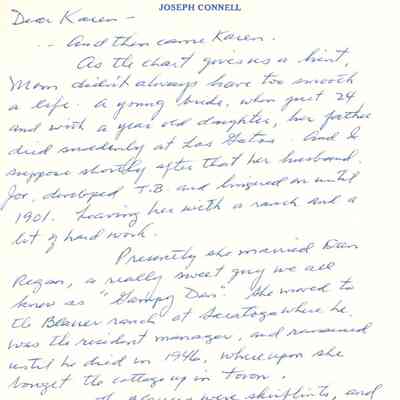 JOSEPH CONNELL
Dear Karen -
-- And then came Karen.
As the chart gives us a hint,
Mom didn't always have too smooth
a life. A young bride, when just 24
and with a year old daughter, her father
died suddenly at Los Gatos. And I
suppose shortly after that her husband,
Joe, developed T.B. and lingered on until
1901. Leaving her with a ranch and a
lot of hard work.
Presently she married Dan
Regan, a really sweet guy we all
knew as "Gampy Dan". She moved to
the Blauer ranch at Saratoga where he
was the resident manager, and remained
until he died in 1946, whereupon she
bought the cottage up in town.
were skinflints, and